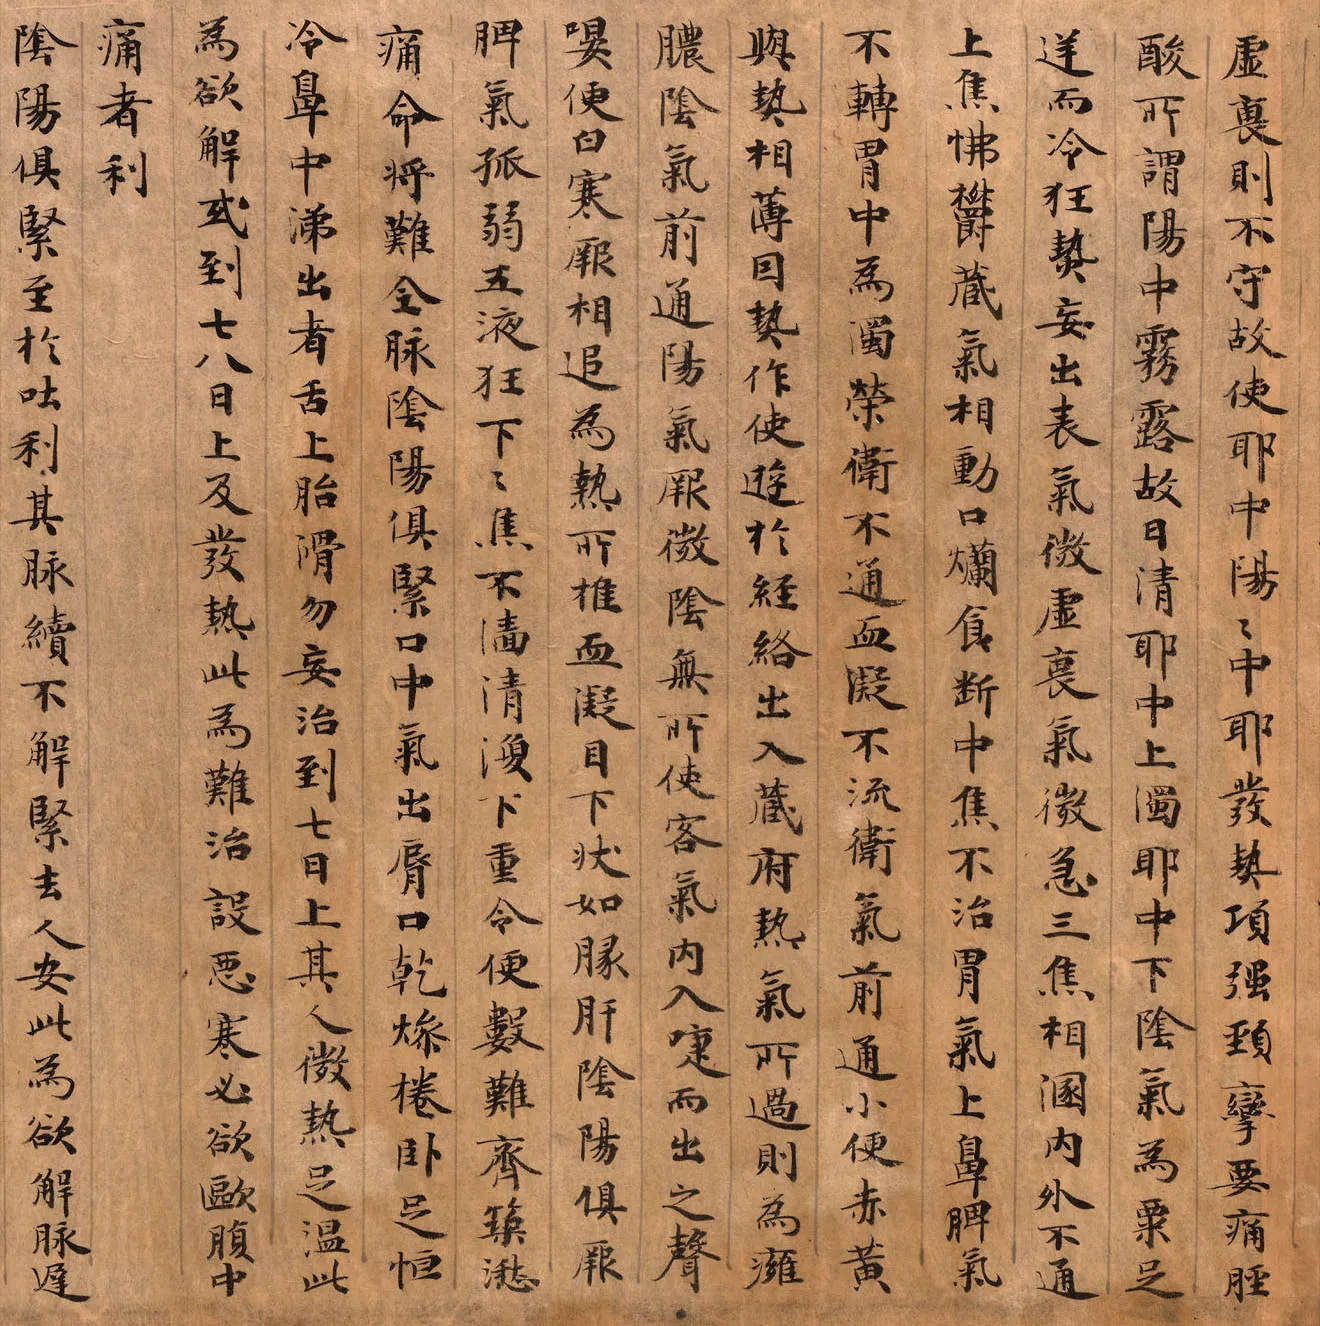 虛裏則不守故使耶中陽〻中耶發熱項强頚攣要痛脛
酸所謂陽中霧露故曰清耶中上濁耶中下陰氣為粟足
逆而冷狂熱妄出表氣微虛裏氣微急三焦相溷内外不通
上焦怫欝蔵氣相動口爛食断中焦不治胃氣上鼻脾氣
不轉胃中為濁榮衛不通血凝不流衛氣前通小便赤黄
與熱相薄因熱作使遊於經絡出入蔵府熱氣所過則為癰
膿陰氣前通陽氣厥微陰無所使客氣内入嚏而出之聲
嗢便臼寒厥相追為熱所推血凝自下状如豚肝陰陽俱厥
脾氣孤弱五液狂下〻焦不濇清溲下重令便數難齊築湫
痛命将難全脉陰陽俱緊口中氣出脣口乾燥惓卧足恒
冷鼻中涕出者舌上胎滑勿妄治到七日上其人微熱足温此
為欲解或到七八日上及發熱此為難治設惡寒必欲歐腹中
痛者利
陰陽俱緊至於吐利其脉續不解緊去人安此為欲解脉遲